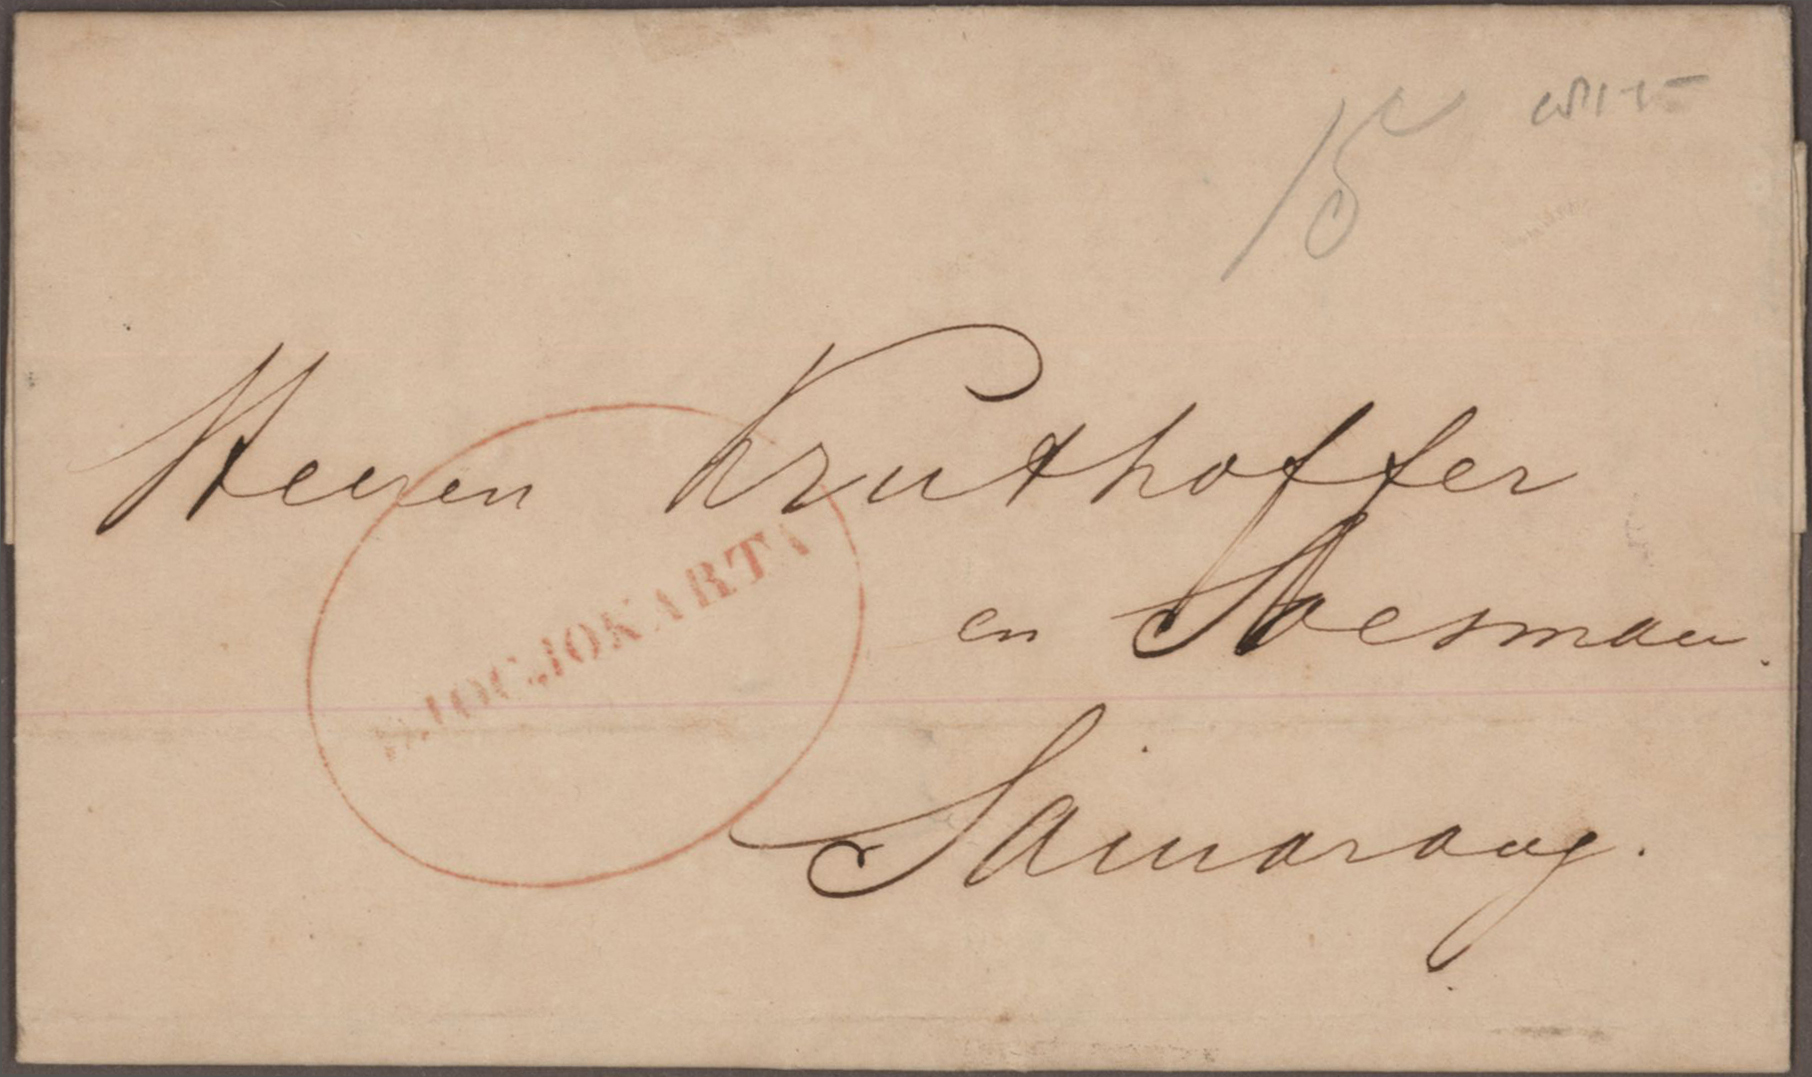 15
Heeren Kruthoffer
DJOCJOKARTA
en Soesman.
Samarang.